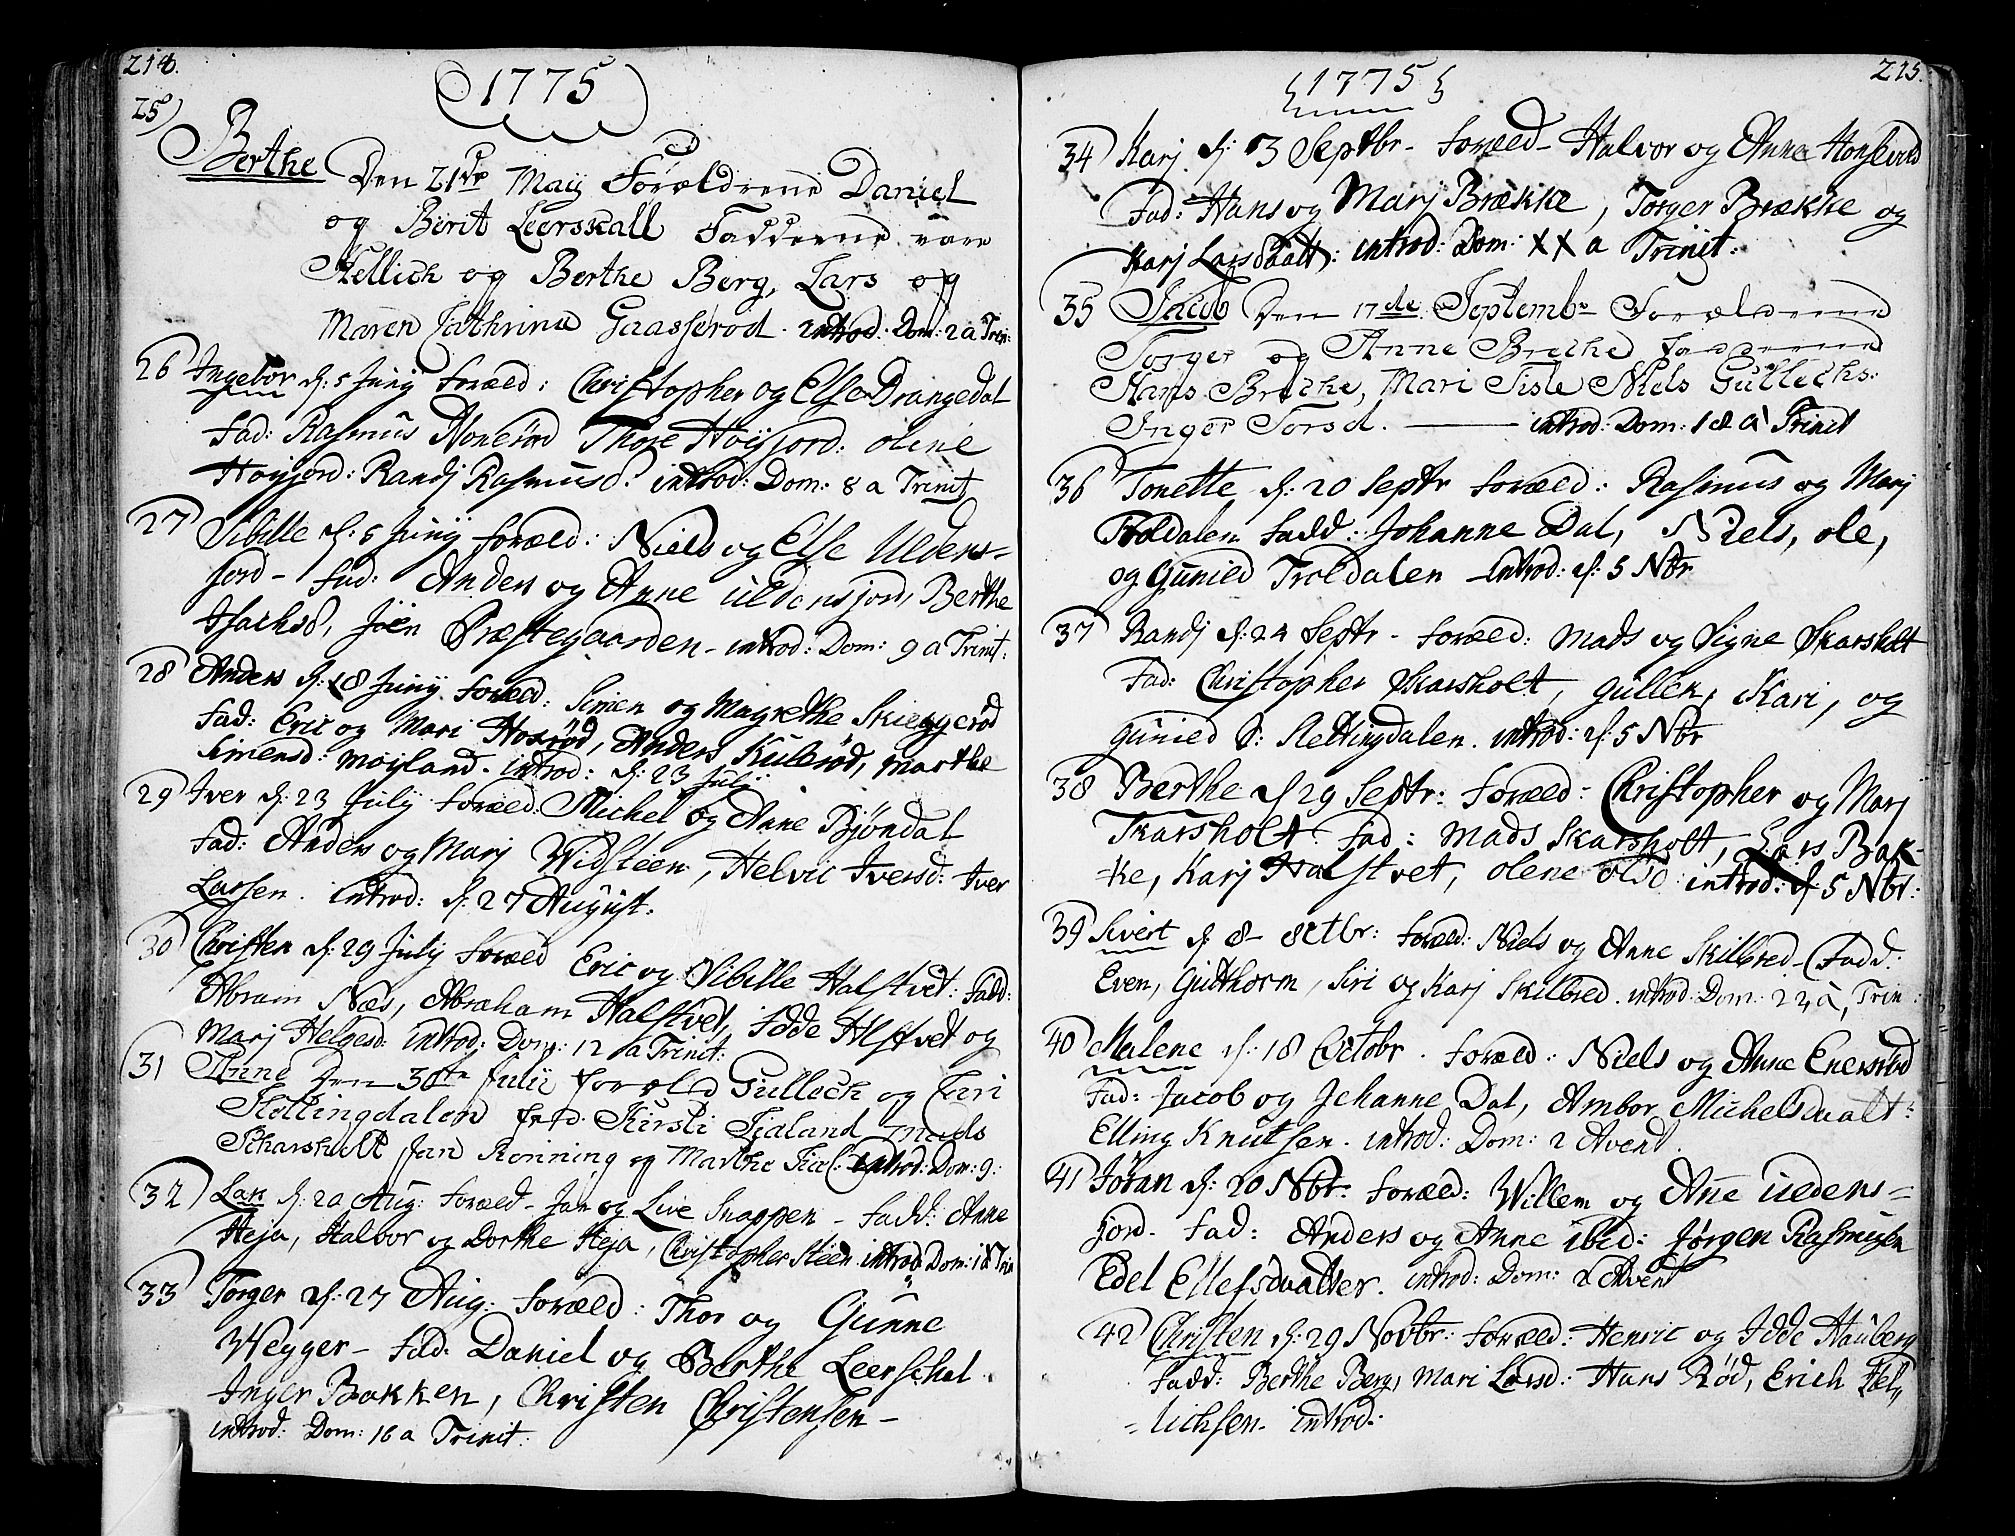 214.
1775
25)
Berthe Den 21de Maij Forældrene Daniel
og Berit Leerskall Fadderne vare
Hellich og Berthe Berg, Lars og
Maren Cathrine Gaasserød. introd: Dom: 2 a Trin:
26 Ingebor d: 5 Junij foræld: Christopher og Else Drangedal
fad: Rasmus Nonerød Thore Høijjord: olene
Høijjord: Randj Rasmusd: introd: Dom: 8 a Trinit
27 Sibille d: 5 Junij foræld: Niels og Else Uldens-
jord - fad: Anders og Anne uldensjord, Berthe
Isachsd, Jöen Præstegaarden - introd: Dom: 9 a Trinit:
28 Anders d: 18 Junij. foræld: Simen og Magrethe Skieggerød
fad: Eric og Mari Hoxrød, Anders Kulerød, marthe
Simensd: møijland. introd: d: 23 Julij
29 Iver d: 23 Julij foræld: Michel og Anne Bjöndal
fad: Anders og Marj Widsteen, Helvic Iversd: Iver
Larsen. introd: d: 27 August:
30 Christen d: 29 Julij foræld Eric og Sibille Halstvet: fadd:
Abram Næs, Abraham Halstvet, Idde Hlstvet og
Marj Helgesd: introd: Dom: 12 a Trinit:
31 Anne Den 30te Julii foræld Gullech og Kari
Slettingdalen fad: Kirsti Fialand Mads
Scharsholt Jan Rønning og Marthe introd: Dom: 9:
32 Lars d: 20 Aug: foræld - Jan og Live Snappen - fadd: Anne
Heja, Halvor og Dorthe Heja, Christopher Steen. introd Dom: 18 Trin
33 Torger d: 27 Aug: foræld: Thor og Gunne
Wegger - fad: Daniel og Berthe Leerschal.
Inger Bakken, Christen Christensen -
introd: Dom: 16 a Trinit:
215.
1775
34 Karj d: 3 Septbr - foræld - Halvor og Anne Honserud
fad: Hans og Marj Brække, Torger Brække og
Karj Larsdaatt: introd: Dom: XX a Trinit:
35 Jacob Den 17de Septembr Forældrene
Torger og Anne Breche Fadderne
Hans Breche, Mari Sisle Niels Gullechs:
Inger Torsd. introd: Dom: 18 a Trinit
36 Tonette d: 20 Septr foræld: Rasmus og Marj
Troldalen fadd: Johanne Dal, Niels, ole,
og Gunied Troldalen - introd: d: 5 Nbr
37 Randj d: 24 Septr - foræld: Mads og Signe Skarsholt
fad: Christopher Skarsholt, Gullek, Kari, og
Gunied S: Slettingdalen. introd: d: 5 Nbr
38 Berthe d 29 Septr: foræld: Christopher og Marj
Skarsholt fad: Mads Skarsholt, Lars Bak-
-ke, Karj Halstvet, olene olsd: introd: d 5 Nbr:
39 Sivert d: 8 - 8ctbr: foræld: Niels og Anne Skilbred - Fadd:
Even, Gutthorm, Siri og Karj Skilbred. introd: Dom: 22 a, Trin:
40 Malene d: 18 Octobr. foræld: Niels og Anne Enersrød
fad: Jacob og Johanne Dal, Ambor Michelsdaatt:
Elling Knutsen. introd: Dom: 2 Avent.
41 Jöran d: 20 Nbr: foræld: Willem og Añe uldens-
jord. fad: Anders og Anne ibid: Jørgen Rasmusen
Edel Ellefsdaatter. introd: Dom: 2 Avent
42 Christen d: 29 Novbr: foræld: Henric og Idde Hauberg
fadd: Berthe Berg, Mari Larsd: Hans Rød, Erich Hel-
-lichsen - introd: